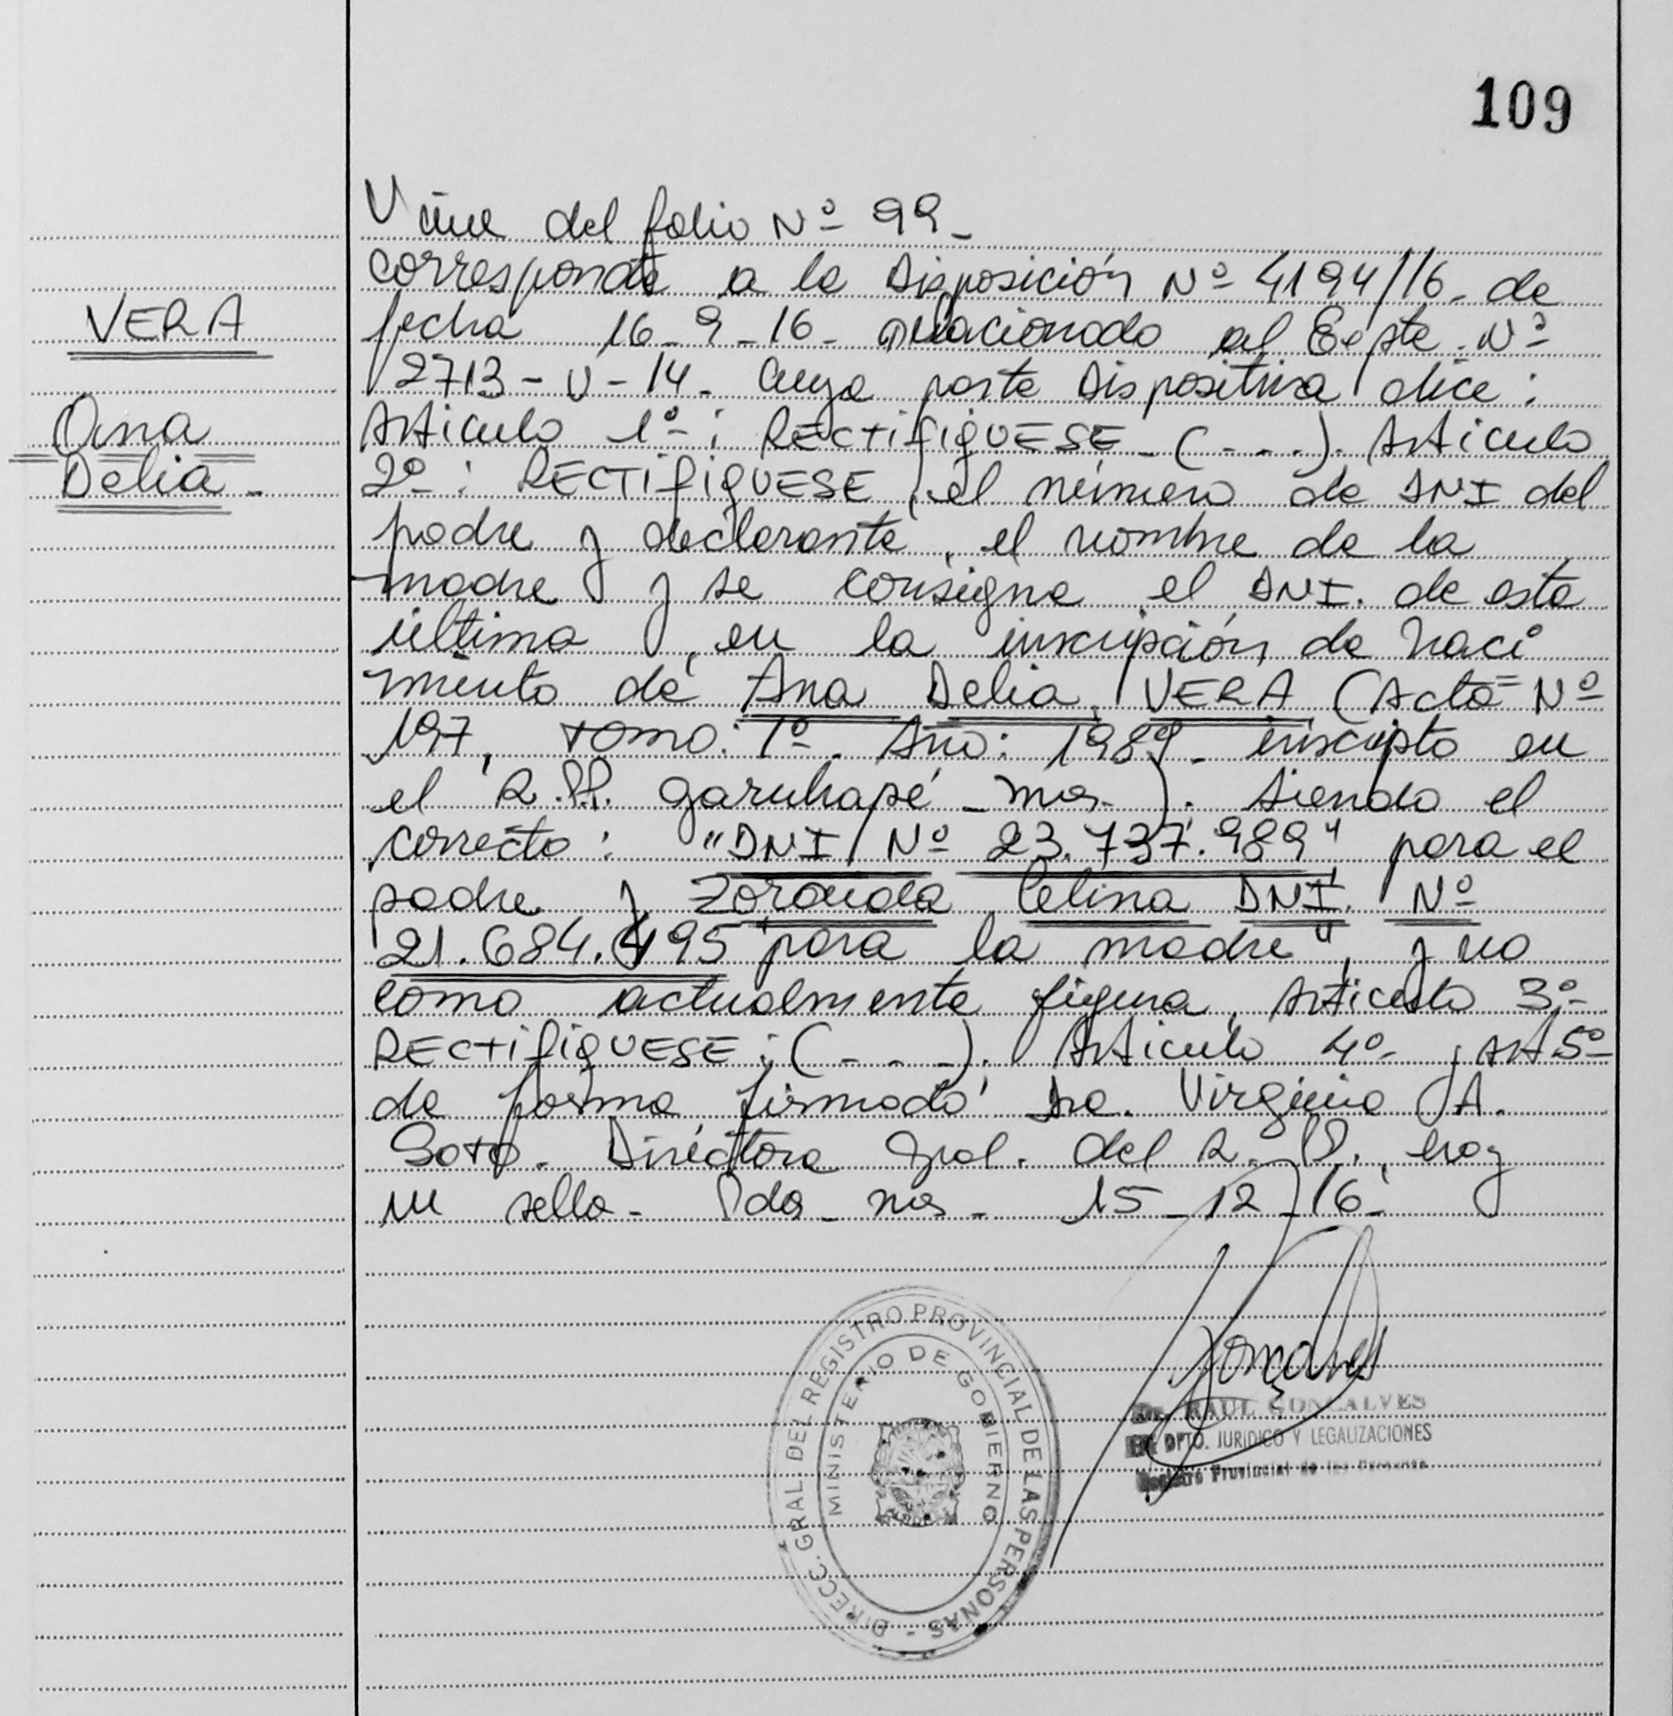 109
Viene del folio Nº 99 -
corresponde a la Disposición Nº 4194/16 - de
VERA
fecha 16-9-16 - relacionado al Expte. Nº
2713 - V - 14 - Cuya parte Dispositiva dice :
Ana
Articulo 1º : RECTIFIQUESE - (- - -). Articulo
Delia -
2º : RECTIFIQUESE, el número de DNI del
padre y declarante, el nombre de la
madre y se consigne el DNI. de esta
última, en la inscripción de Naci
miento de Ana Delia VERA (Acta Nº
197, Tomo: 1º. Año: 1989 - inscripta en
el R.P.P. Garuhapé - Mnes.). Siendo el
correcto : "DNI Nº 23.737.989" para el
padre y Zoraida Celina DNI. Nº
21.684.495 para la madre", y no
como actualmente figura, Articulo 3º-
RECTIFIQUESE : (- - -). Articulo 4º - , Art 5º
de forma, firmado Dra. Virginia A.
Soto - Directora Gral. del R. P. P., hay
un sello - Pdas - Mnes - 15-12-16 -
DIRECC. GRAL. DEL REGISTRO PROVINCIAL DE LAS PERSONAS -
MINISTERIO DE GOBIERNO
RAUL GONCALVES
DPTO. JURIDICO Y LEGALIZACIONES
Registro Provincial de las Personas